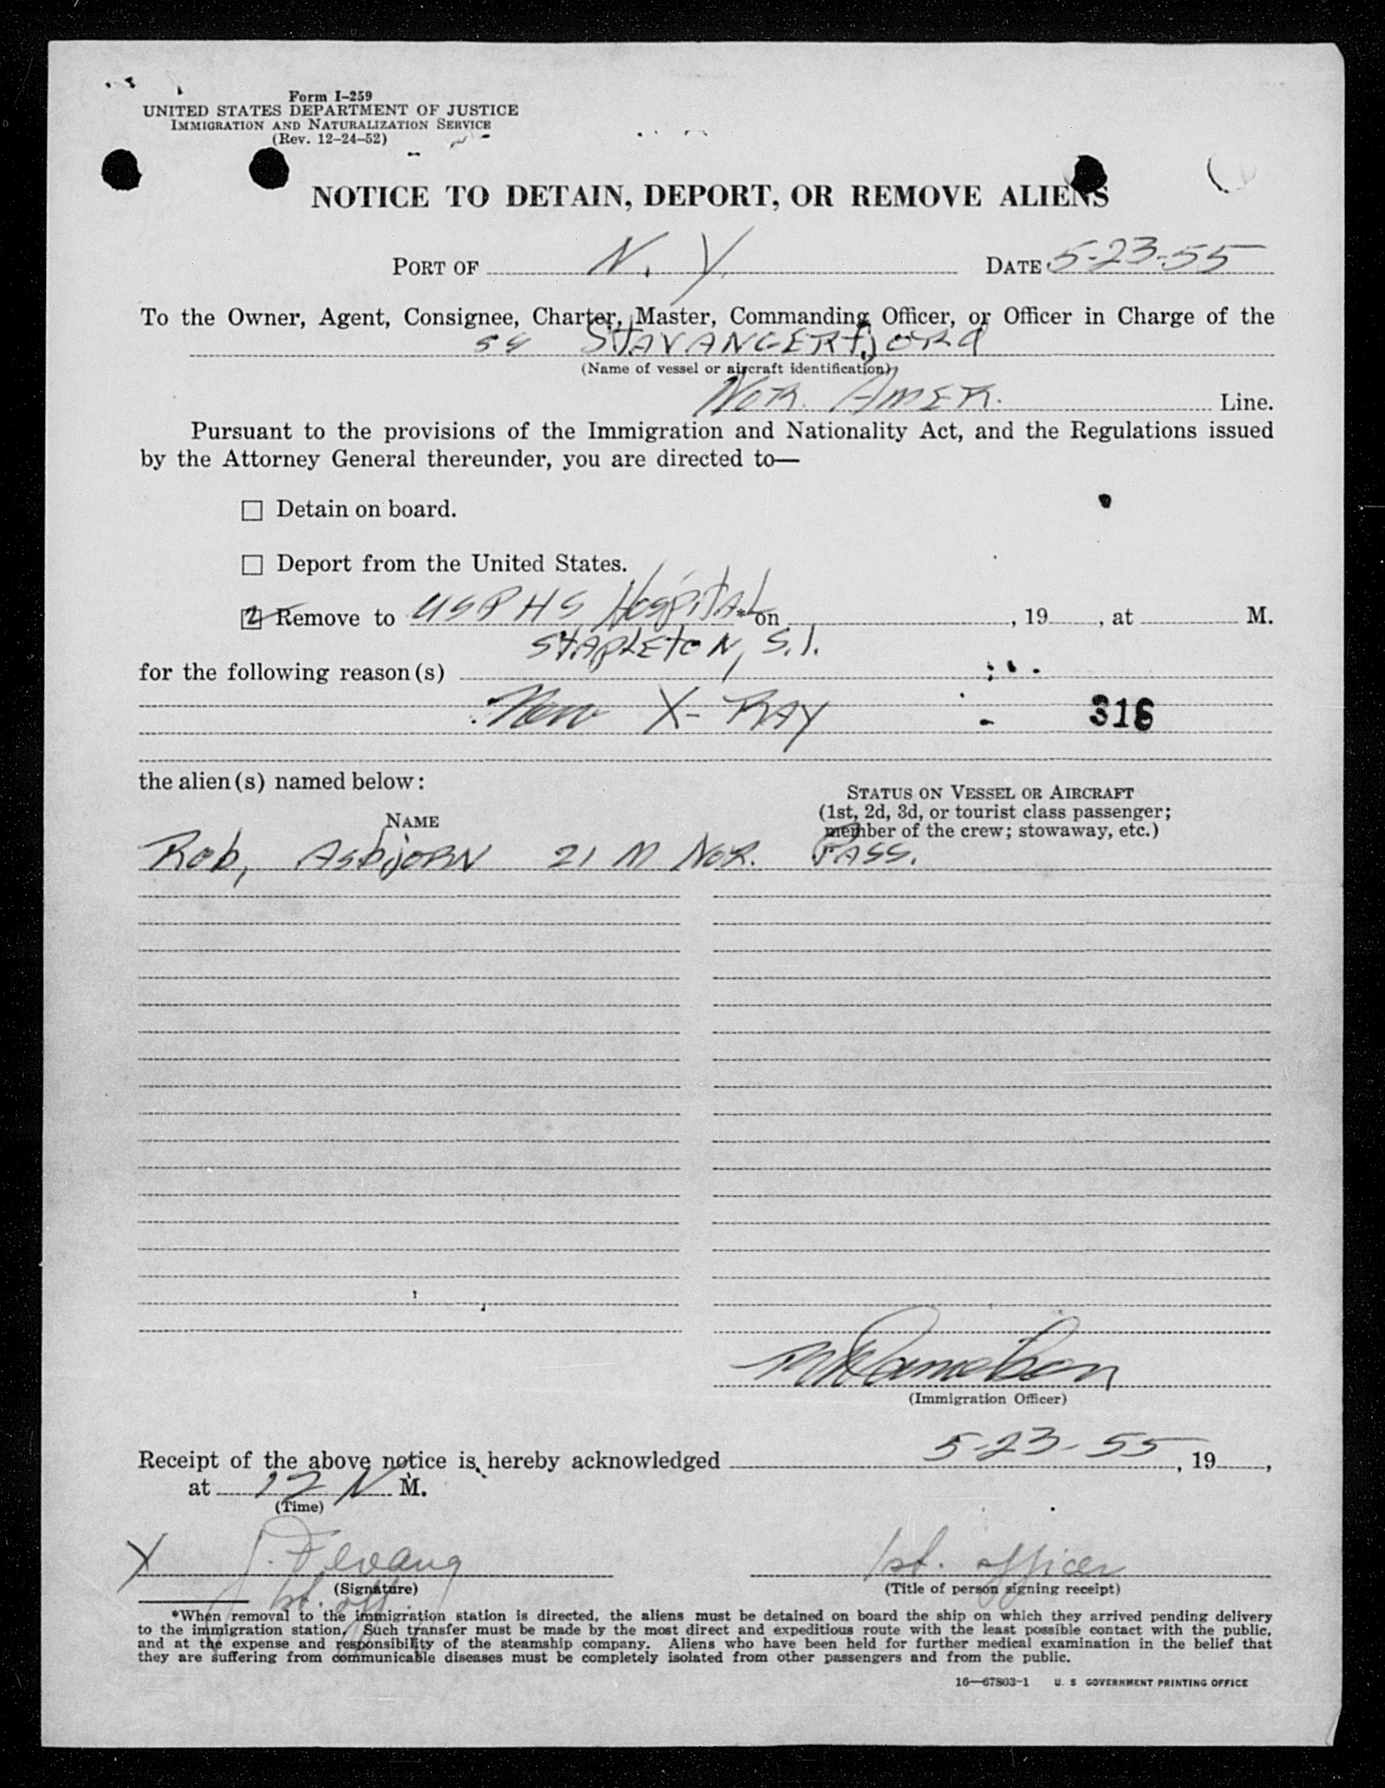 Form I-259
UNITED STATES DEPARTMENT OF JUSTICE
IMMIGRATION AND NATURALIZATION SERVICE
(Rev. 12-24-52)
NOTICE TO DETAIN, DEPORT, OR REMOVE ALIENS
PORT OF N. Y. DATE 5-23-55
To the Owner, Agent, Consignee, Charter, Master, Commanding Officer, or Officer in Charge of the
SS STAVANGERfjORd
(Name of vessel or aircraft identification)
NOR. AMER. Line.
Pursuant to the provisions of the Immigration and Nationality Act, and the Regulations issued
by the Attorney General thereunder, you are directed to—
☐ Detain on board.
☐ Deport from the United States.
Remove to USPHS HospitAL *on , 19 , at M.
STAPLETON, S.I.
for the following reason(s)
X-RAY 316
the alien(s) named below:
STATUS ON VESSEL OR AIRCRAFT
(1st, 2d, 3d, or tourist class passenger;
NAME member of the crew; stowaway, etc.)
Rob, ASbjORN 21 M NOR. PASS.
(Immigration Officer)
Receipt of the above notice is hereby acknowledged 5-23-55, 19 ,
at 12 N M.
(Time)
X 1st. officer
(Signature) (Title of person signing receipt)
1st. off.
*When removal to the immigration station is directed, the aliens must be detained on board the ship on which they arrived pending delivery
to the immigration station. Such transfer must be made by the most direct and expeditious route with the least possible contact with the public,
and at the expense and responsibility of the steamship company. Aliens who have been held for further medical examination in the belief that
they are suffering from communicable diseases must be completely isolated from other passengers and from the public.
16—67803-1 U. S GOVERNMENT PRINTING OFFICE